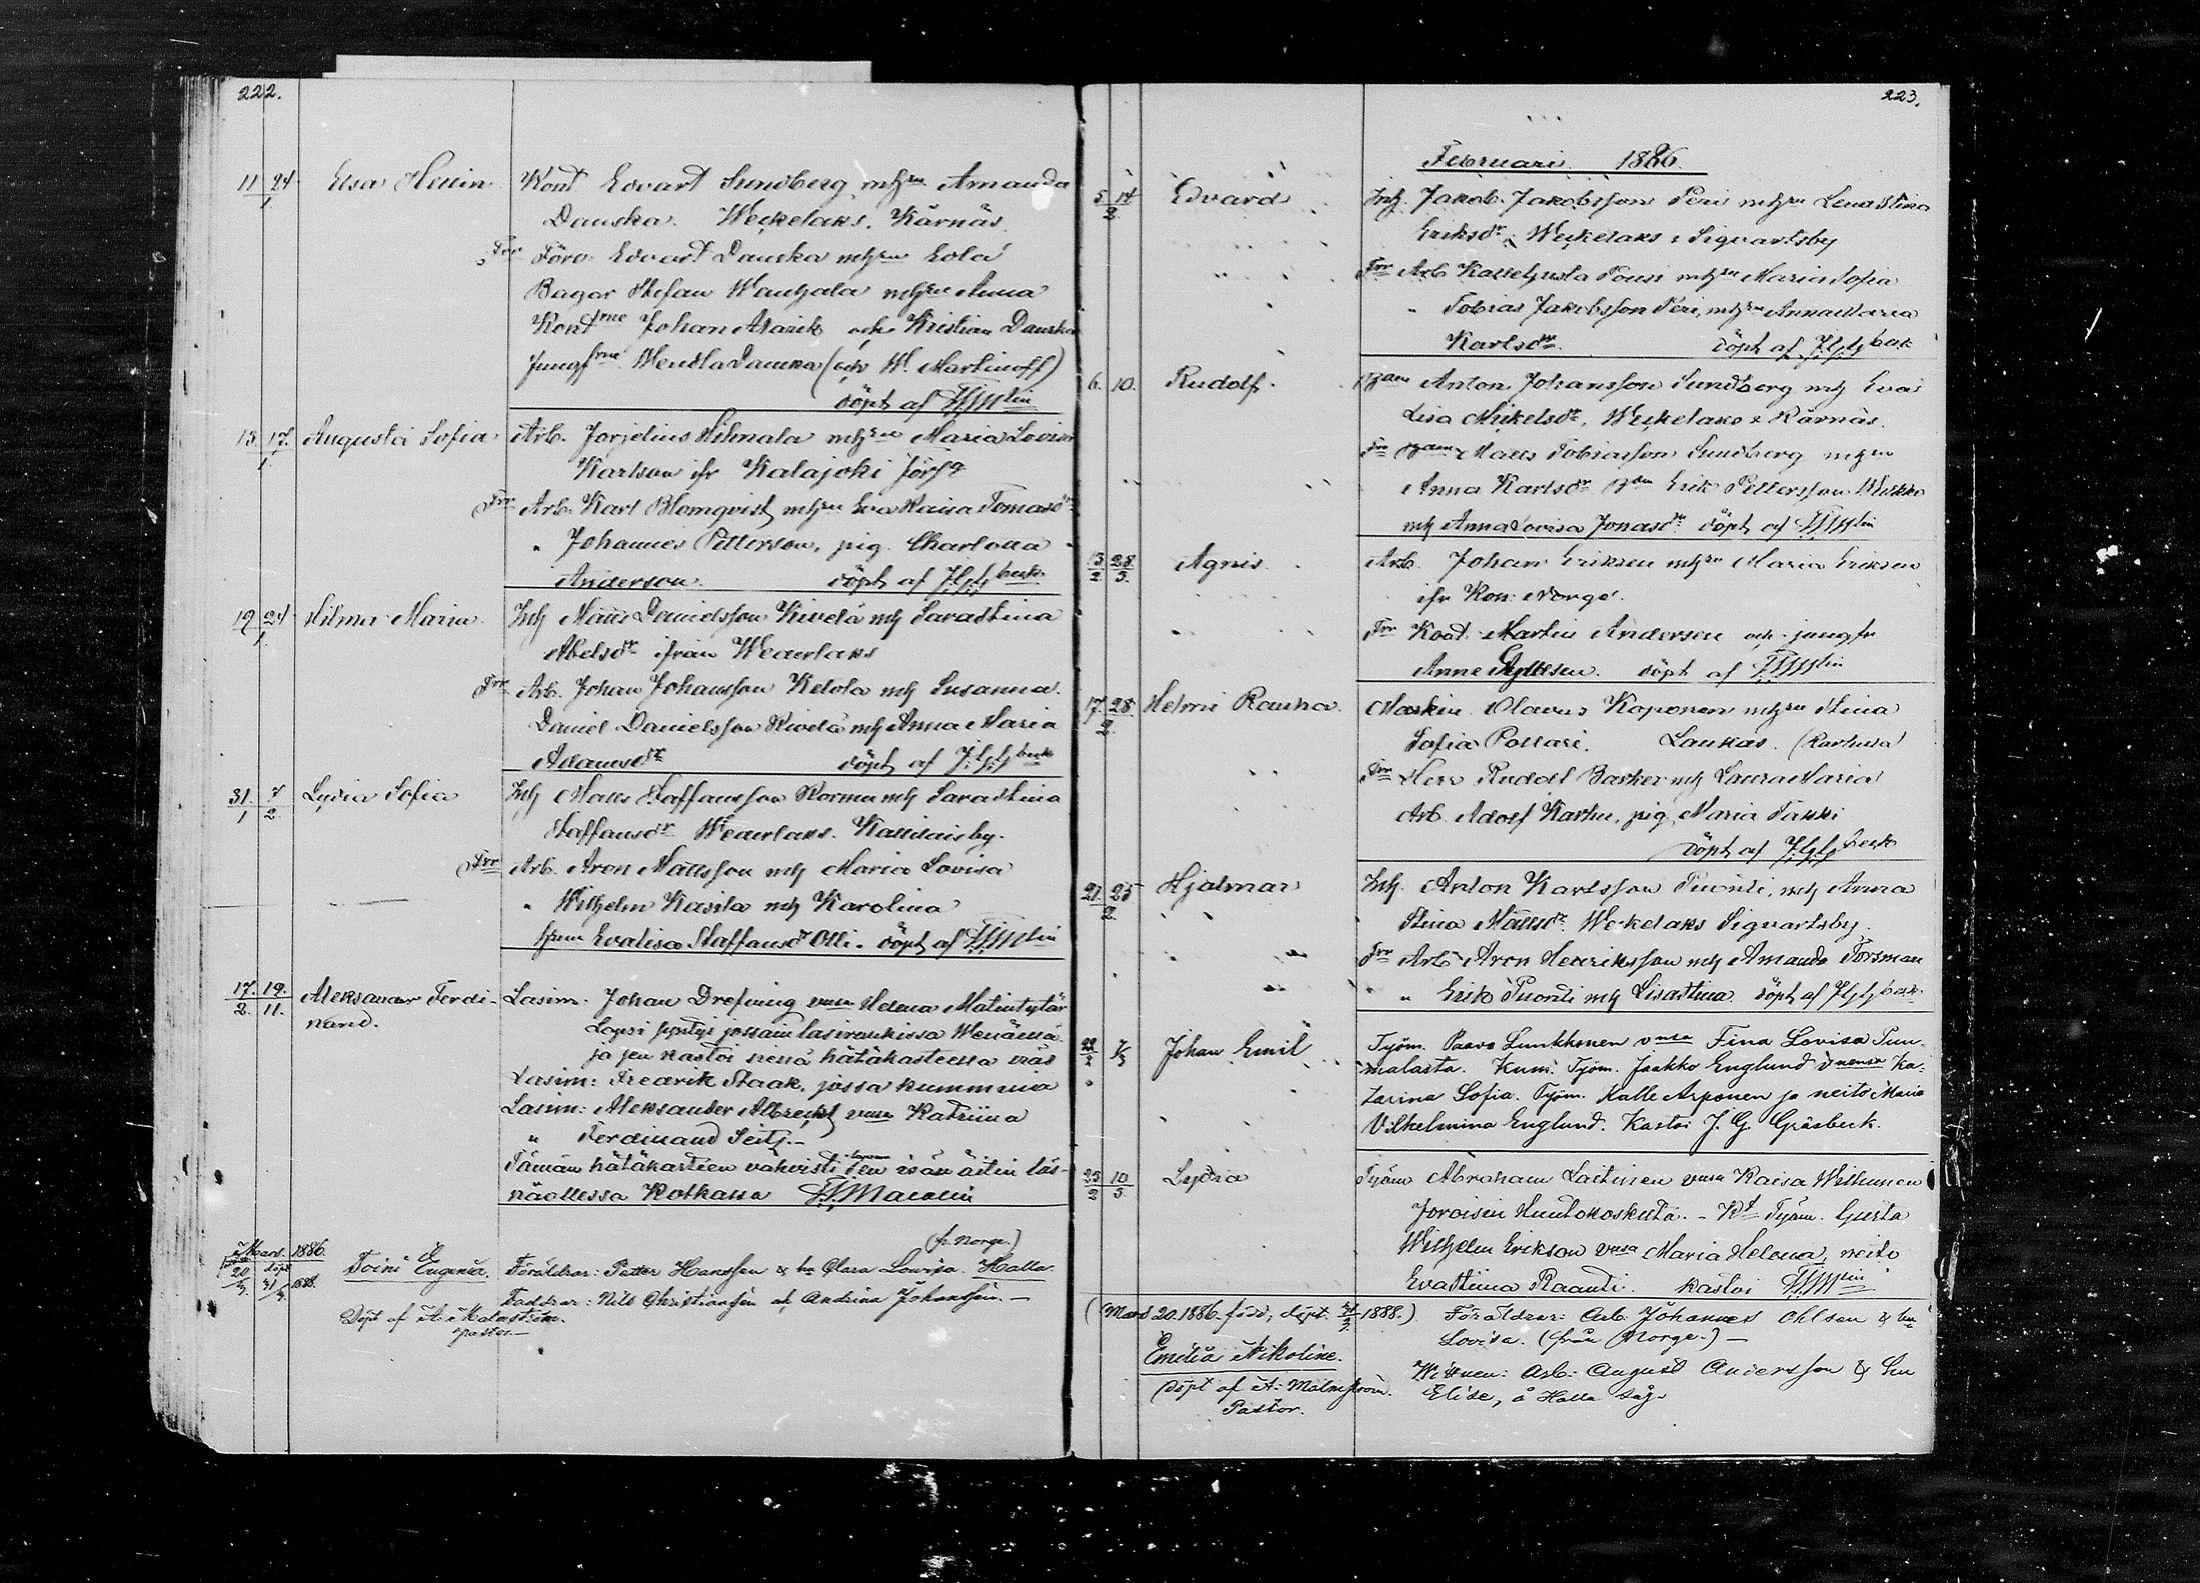 222.
11 24/1 Elsa Helein Kont Edvart Sundberg m hru Amanda
Danska. Weckelaks. Kärnäs
Frr Förv. Edvart Danska m hru Lola
Bagar Stefan m hru Anna
Kont rne Johan och Kristian Danska
Jungf rne Wendla Danska (och W. Martinoff)
döpt af
15. 17./1. Augusta Sofia Arb. m hru Maria Lovisa
Karlson ifr Kalajoki
Frr Arb. Karl Blomqvist m hru Eva Kaisa Tomasdr
" Johannes Petterson, pig. Charlotta
Anderson. döpt af J.G.G beck
19. 24/1 Hilma Maria Inh Matts Danielsson Kivelä mh Sara Stina
Abelsdr ifrån Wederlaks
Frr Arb. Johan Johansson Ketola mh Susanna.
Daniel Danielsson Kivelä mh Anna Maria
Adamsdr döpt af J.G.G beck
31./1 7/2 Lydia Sofia Inh Matts Staffansson Kormu mh Sara Stina
Staffansdr Wederlaks.
Frr Arb. Aron Mattsson mh Maria Lovisa
" Wilhelm Kasila mh Karolina
Eva Lisa Staffansdr Olli. döpt af
17./2. 19./11. Aleksander Ferdi- Lasim. Johan Drefning vmsa Helena Matintytär
nand. Lapsi syntyi jossain lasiruukissa Wenäellä
ja sen kastoi siellä hätäkasteessa
Lasim: Fredrik Staak, jossa kummeina
Lasim: Aleksander Albrecht vmsa Katriina
" Ferdinand Seitz.-
Tämän hätäkasteen vahvisti lapsen isän äitin läs-
näollessa Kotkassa
(fr. Norge.)
Mart. 1886. född 20/3. döpt 31/3. 1888. Toini Eugenia. Föräldrar: Petter Hanssen & h. Clara Lovisa. Halla
Faddrar: Nils Christiansen och Andrina Johansen.-
Döpt af A. Malmström.
pastor.-
223.
Februari 1886.
5. 14/2 Edvard Inh. Jakob Jakobsson Peri m hru Lena Stina
Eriksdr Weckelaks Sigvartsby
Frr Arb Kalle Gusta m hru Maria Sofia
" Tobias Jakobsson Peri, m hru Anna Maria
Karlsdr. döpt af J.G.G beck
6. 10. Rudolf. Anton Johansson Sundberg mh Eva
Lisa Mickelsdr, Weckelaks Kärnäs.
Frr Matts Tobiasson Sundberg m hru
Anna Karlsdr Erik Pettersson
mh Anna Lovisa Jonasdr döpt af
13/2 28/3. Agnis. Arb. Johan Eriksen m hru Maria Eriksen
ifr Kon. Norge.
Frr Kont. Martin Andersen och jungfr
Anne döpt af
17. 28./2. Helmi Rauha Maskin. Olavus Koponen m hru Stina
Sofia Laukas. (Karhula)
Frr Herr Rudolf Barker mh Laura Maria
Arb. Adolf Karhu, pig. Maria
döpt af J.G.G beck
21. 25/2. Hjalmar Inh. Anton Karlsson Puonti, mh Anna
Stina Mattsdr. Weckelaks Sigvartsby.
Frr Arb Aron Henriksson mh Amanda Forsman
" Erik Puonti mh Lisa Stina. döpt af J.G.G beck.
22/2 7/3 Johan Emil Työm. Paavo Lunkkonen vmsa Fina Lovisa Puu-
malasta. Kum. Työm. Jaakko Englund Ka-
tarina Sofia. Työm. Kalle Arponen ja neito Maria
Vilhelmina Englund. Kastoi J. G. Gräsbeck.
25/2 10/3 Lydia Työm Abraham Laitinen vmsa Kaisa Wilhunen
Joroisin Huutokoskelta.- Kt Työm. Gusta
Wilhelm Erikson vmsa Maria Helena, neito
Eva Stiina Raanti. Kastoi
(Mars 20. 1886. född, döpt. 1888.) Föräldrar: Arb. Johannes Ohlsen & hu
Lovisa. (från Norge.)-
Emilia Nikoline. Wittnen: Arb. August Andersson & hu
Döpt af A. Malmström. Elise, å Halla såg.
Pastor.